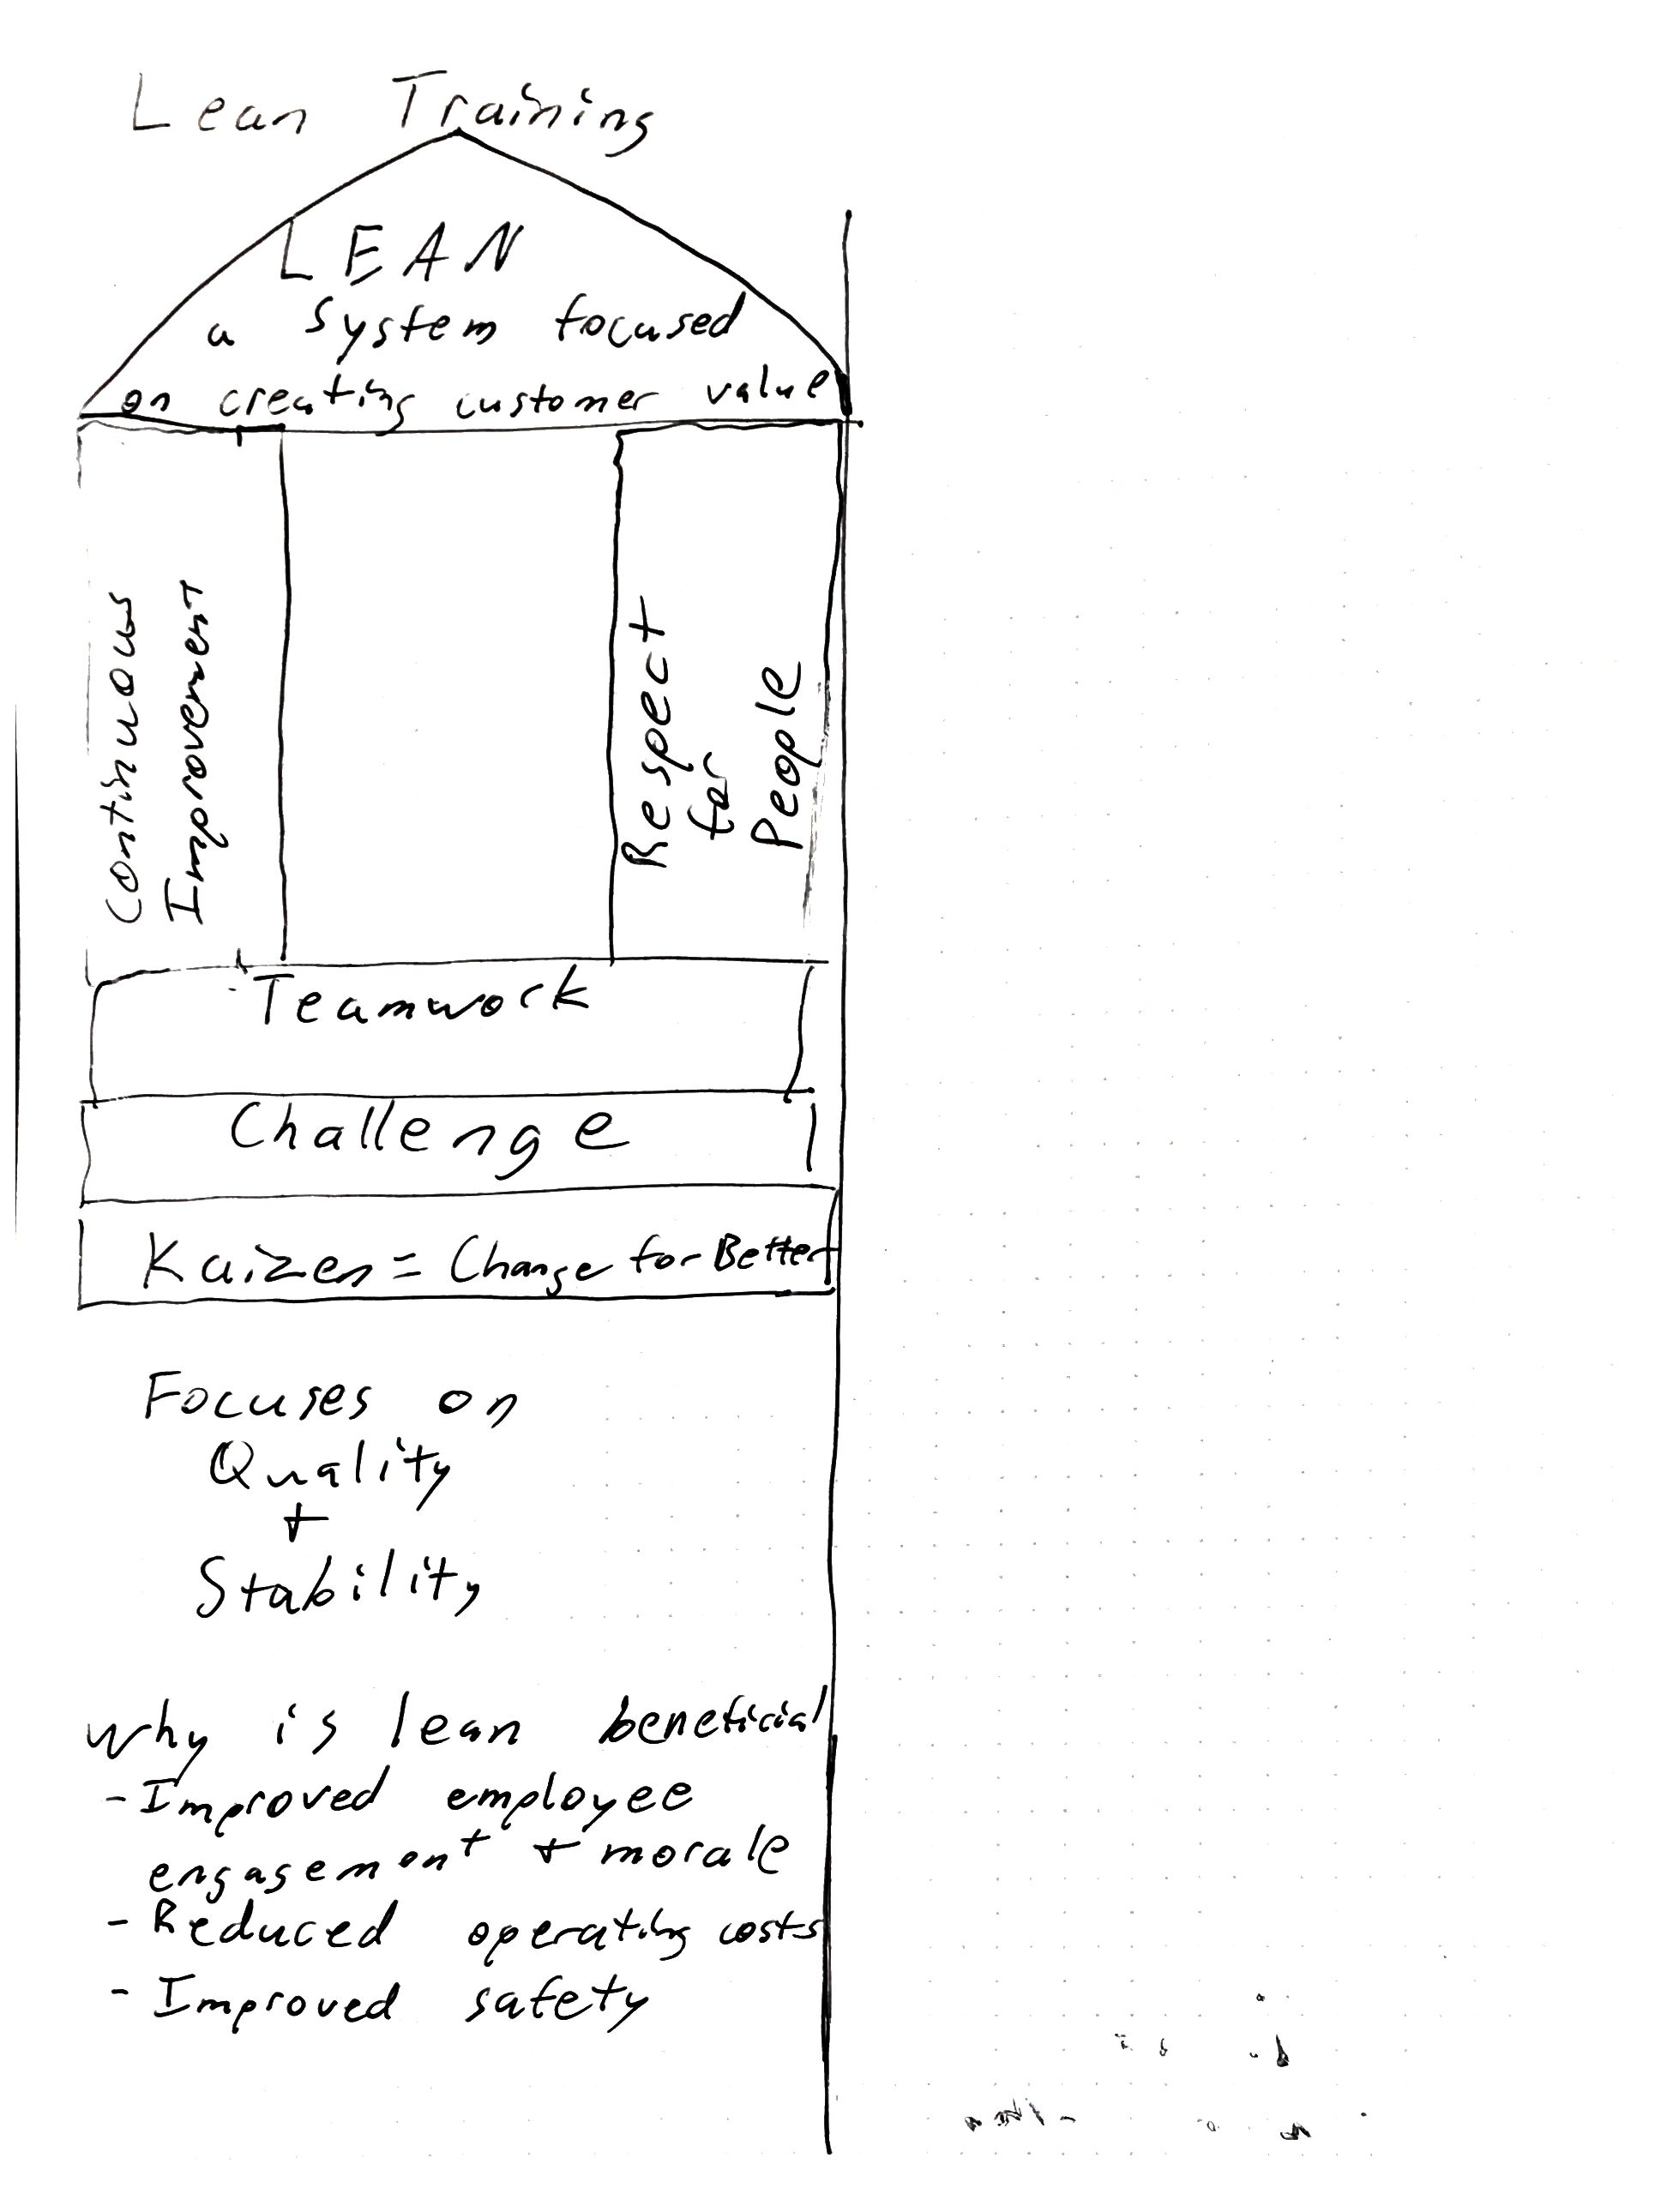 Lean Training
LEAN
a system focused
on creating customer value
Continuous
Improvement
Respect
for
People
Teamwork
Challenge
Kaizen = Change for Better
Focuses on
Quality
+
Stability
why is lean beneficial
- Improved employee
engagement + morale
- Reduced operating costs
- Improved safety